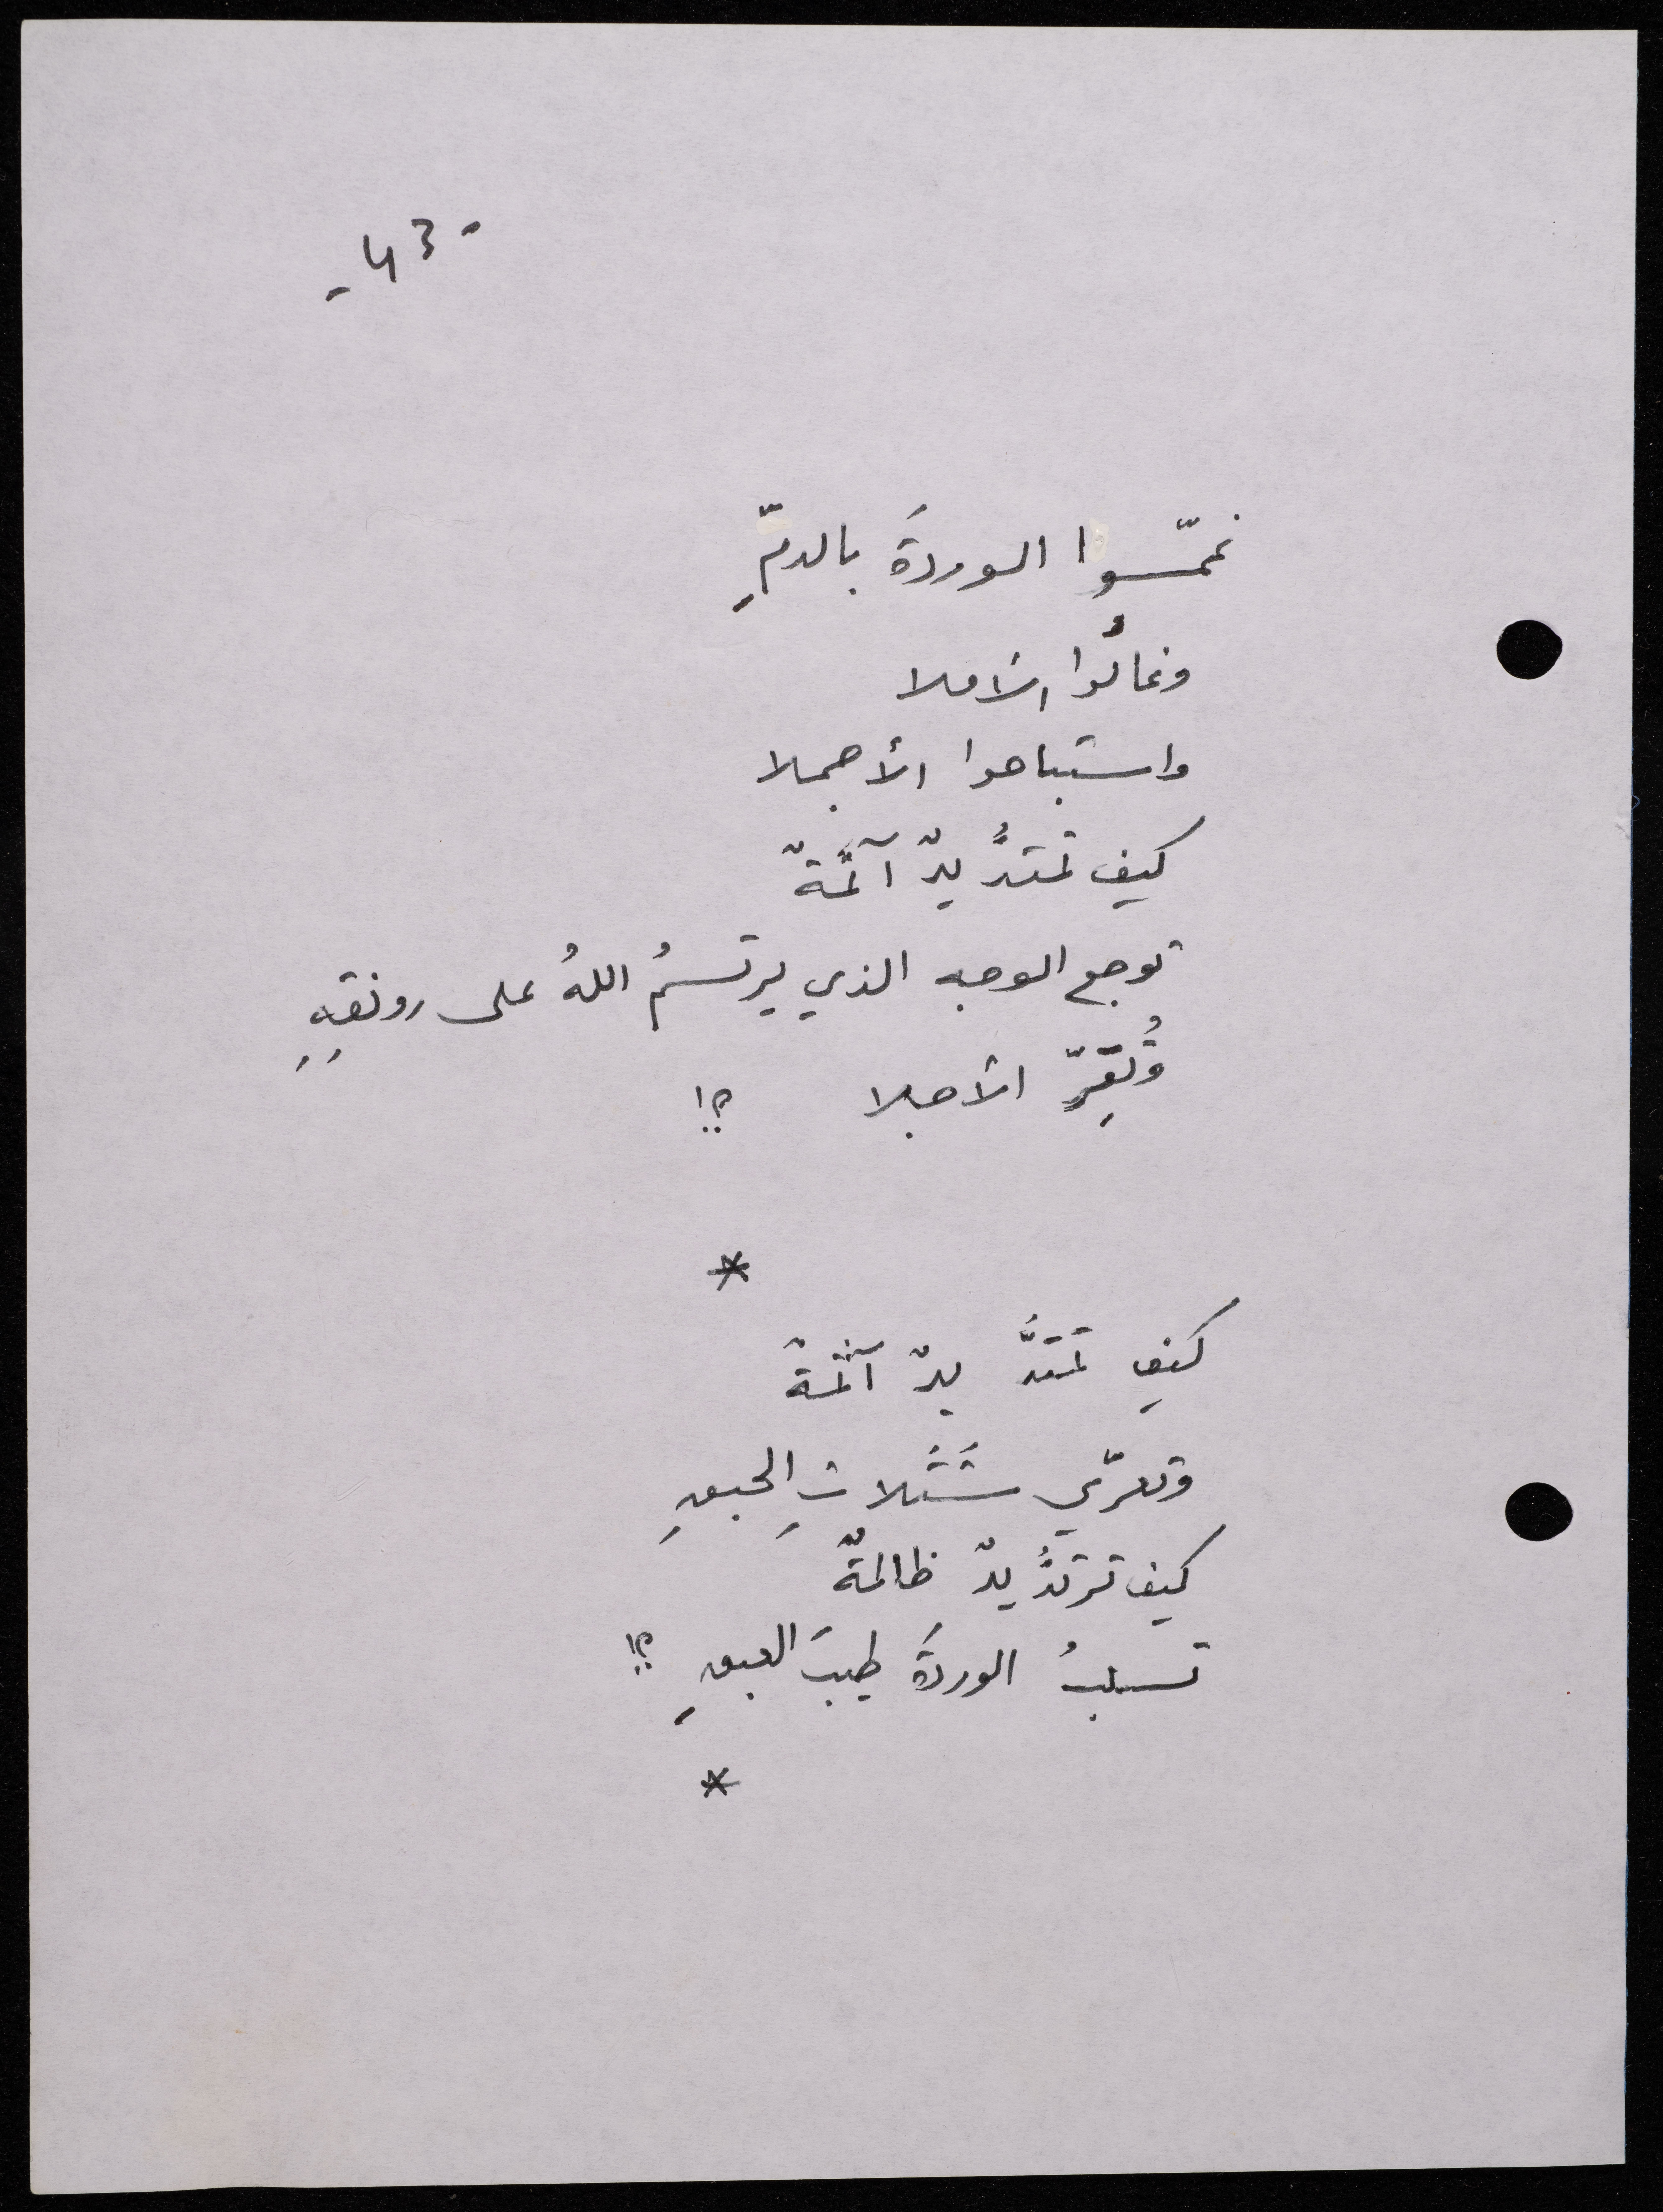 - 43 -
غمّسوا الوردةَ بالدمِّ
وغالُوا الأملا
واستباحوا الأجملا
كيف تمتدُّ يدٌ آثمةٌ
توجع الوجه الذي يرتسمُ اللهُ على رونقِهِ
وتُقِرّ الأجلا ؟!
*
كيف تمتدُّ يدٌ آثمةٌ
وتعرّي شَتَلاتِ الحبقِ
كيف ترتدُّ يدٌ ظالمةٌ
تسلبُ الوردةَ طيبَ العبقِ ؟!
*